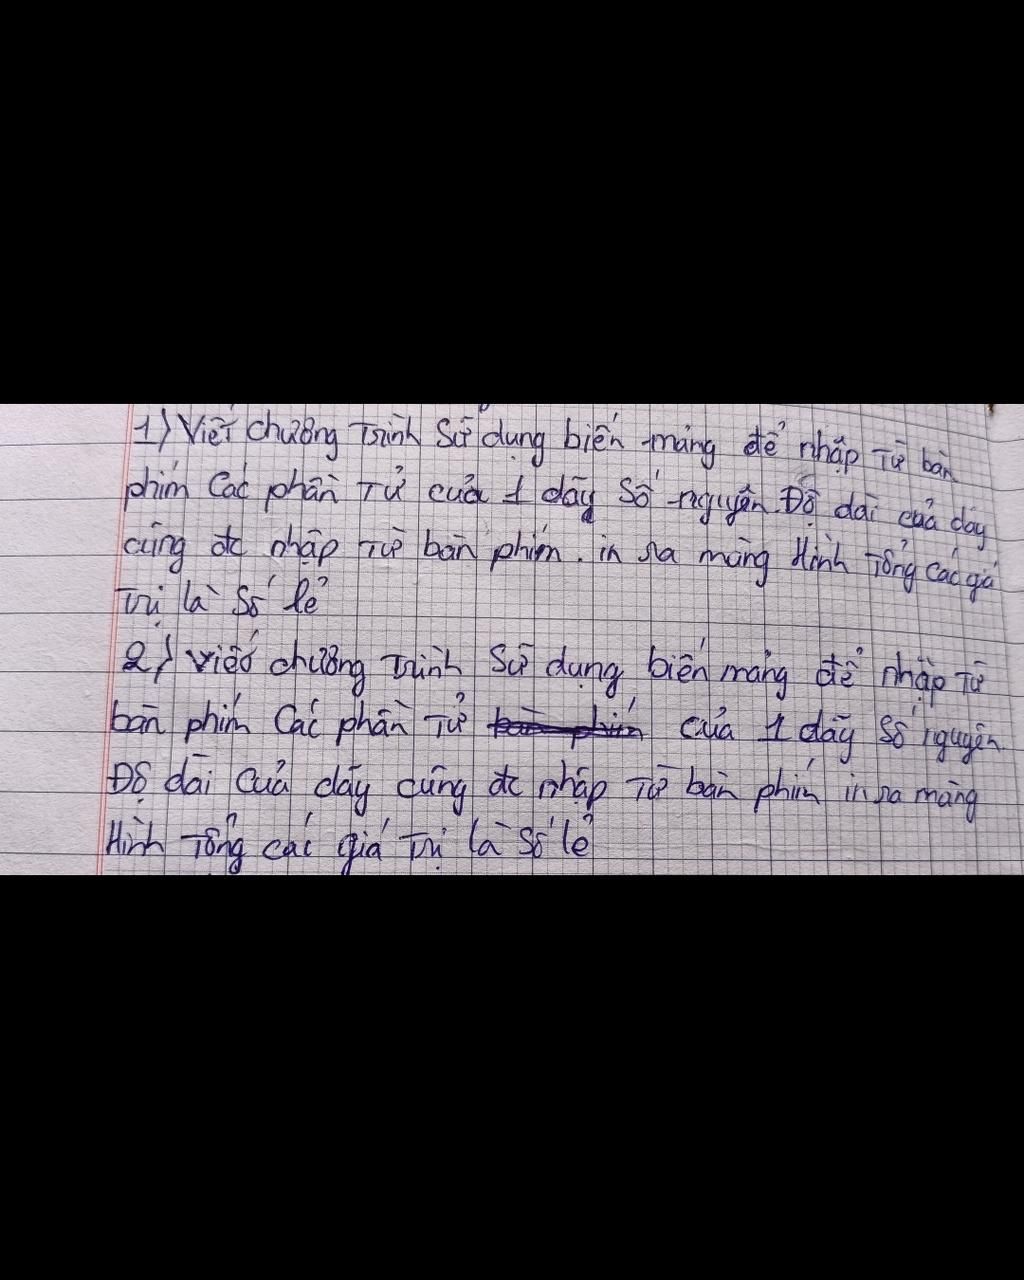 1) Viết chương trình Sử dụng biến mảng để nhập từ bàn
phím Các phần tử của 1 dãy số nguyên. Độ dài của dãy
cũng đc nhập từ bàn phím. in ra màng Hình tổng các giá
trị là số lẻ
2) Viết chương trình Sử dụng biến mảng để nhập từ
bàn phím Các phần tử của 1 dãy số nguyên
Độ dài của dãy cũng đc nhập từ bàn phím in ra màng
Hình tổng các giá trị là số lẻ